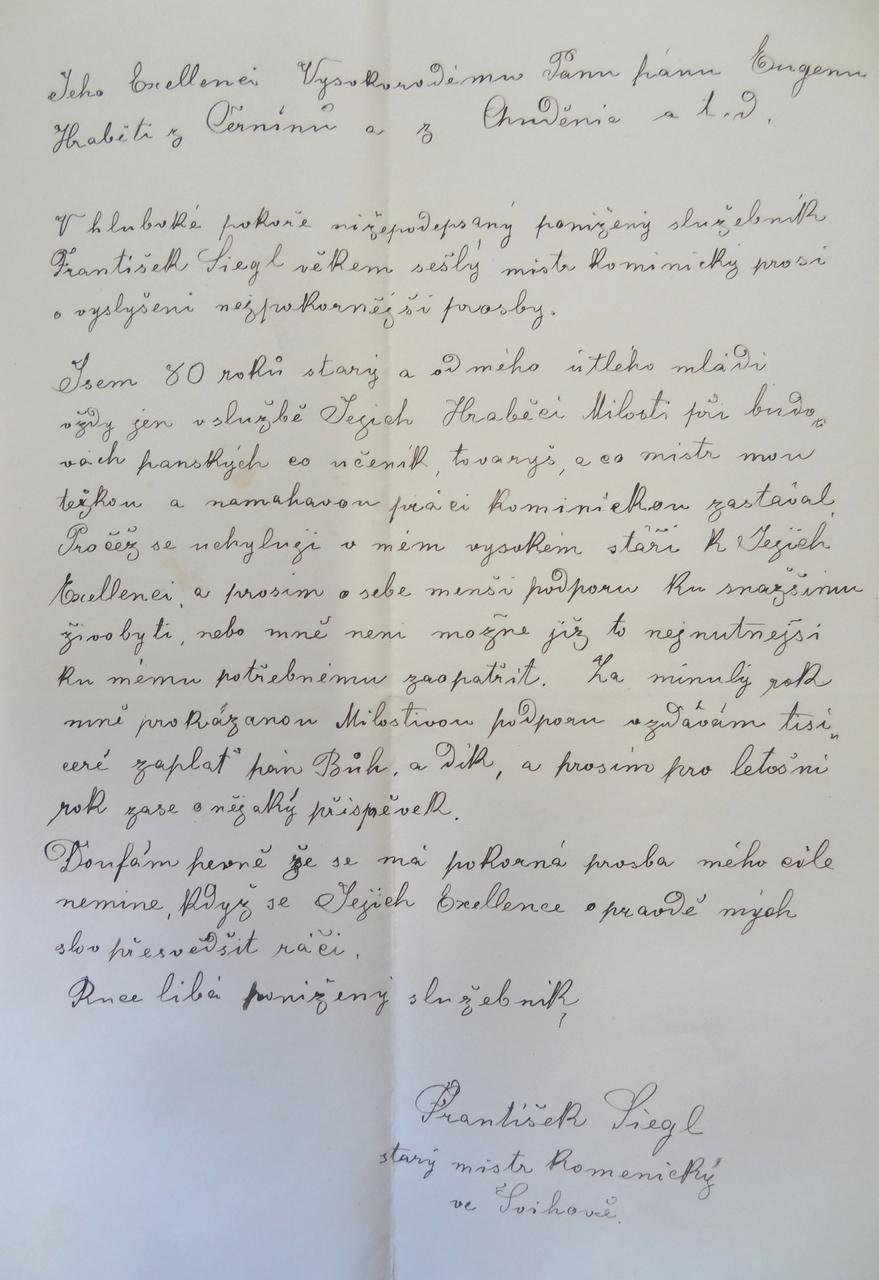 Jeho Excellenci Vysokorodému Pánu pánu Eugenu
Hraběti z Černínů a z Chuděnic a t.d.
V hluboké pokoře nížepodepsaný ponížený služebník
František Siegl věkem sešlý mistr kominický prosí
o vyslyšení nejpokornější prosby.
Jsem 80 roků starý a od mého útlého mládí
vždy jen v službě Jejich Hraběcí Milosti při budo„
vách panských co učeník, tovaryš, a co mistr mou
težkou a namahavou práci kominickou zastával.
Pročež se uchyluji v mém vysokém stáří k Jejich
Excellenci, a prosím o sebe menší podporu ku snažšímu
živobyti, nebo mně neni možne již to nejnutnejší
ku mému potřebnému zaopatřit. Za minulý rok
mně prokázanou Milostivou podporu vzdávám tisí„
ceré zaplať pán Bůh, a dík, a prosím pro letošní
rok zase o nějaký přispěvek.
Doufám pevně že se má pokorná prosba mého cíle
nemine, když se Jejich Excellence o pravdě mých
slov přesvědšit ráčí.
Ruce libá ponižený služebník,
František Siegl
starý mistr komenický
ve Švihově.